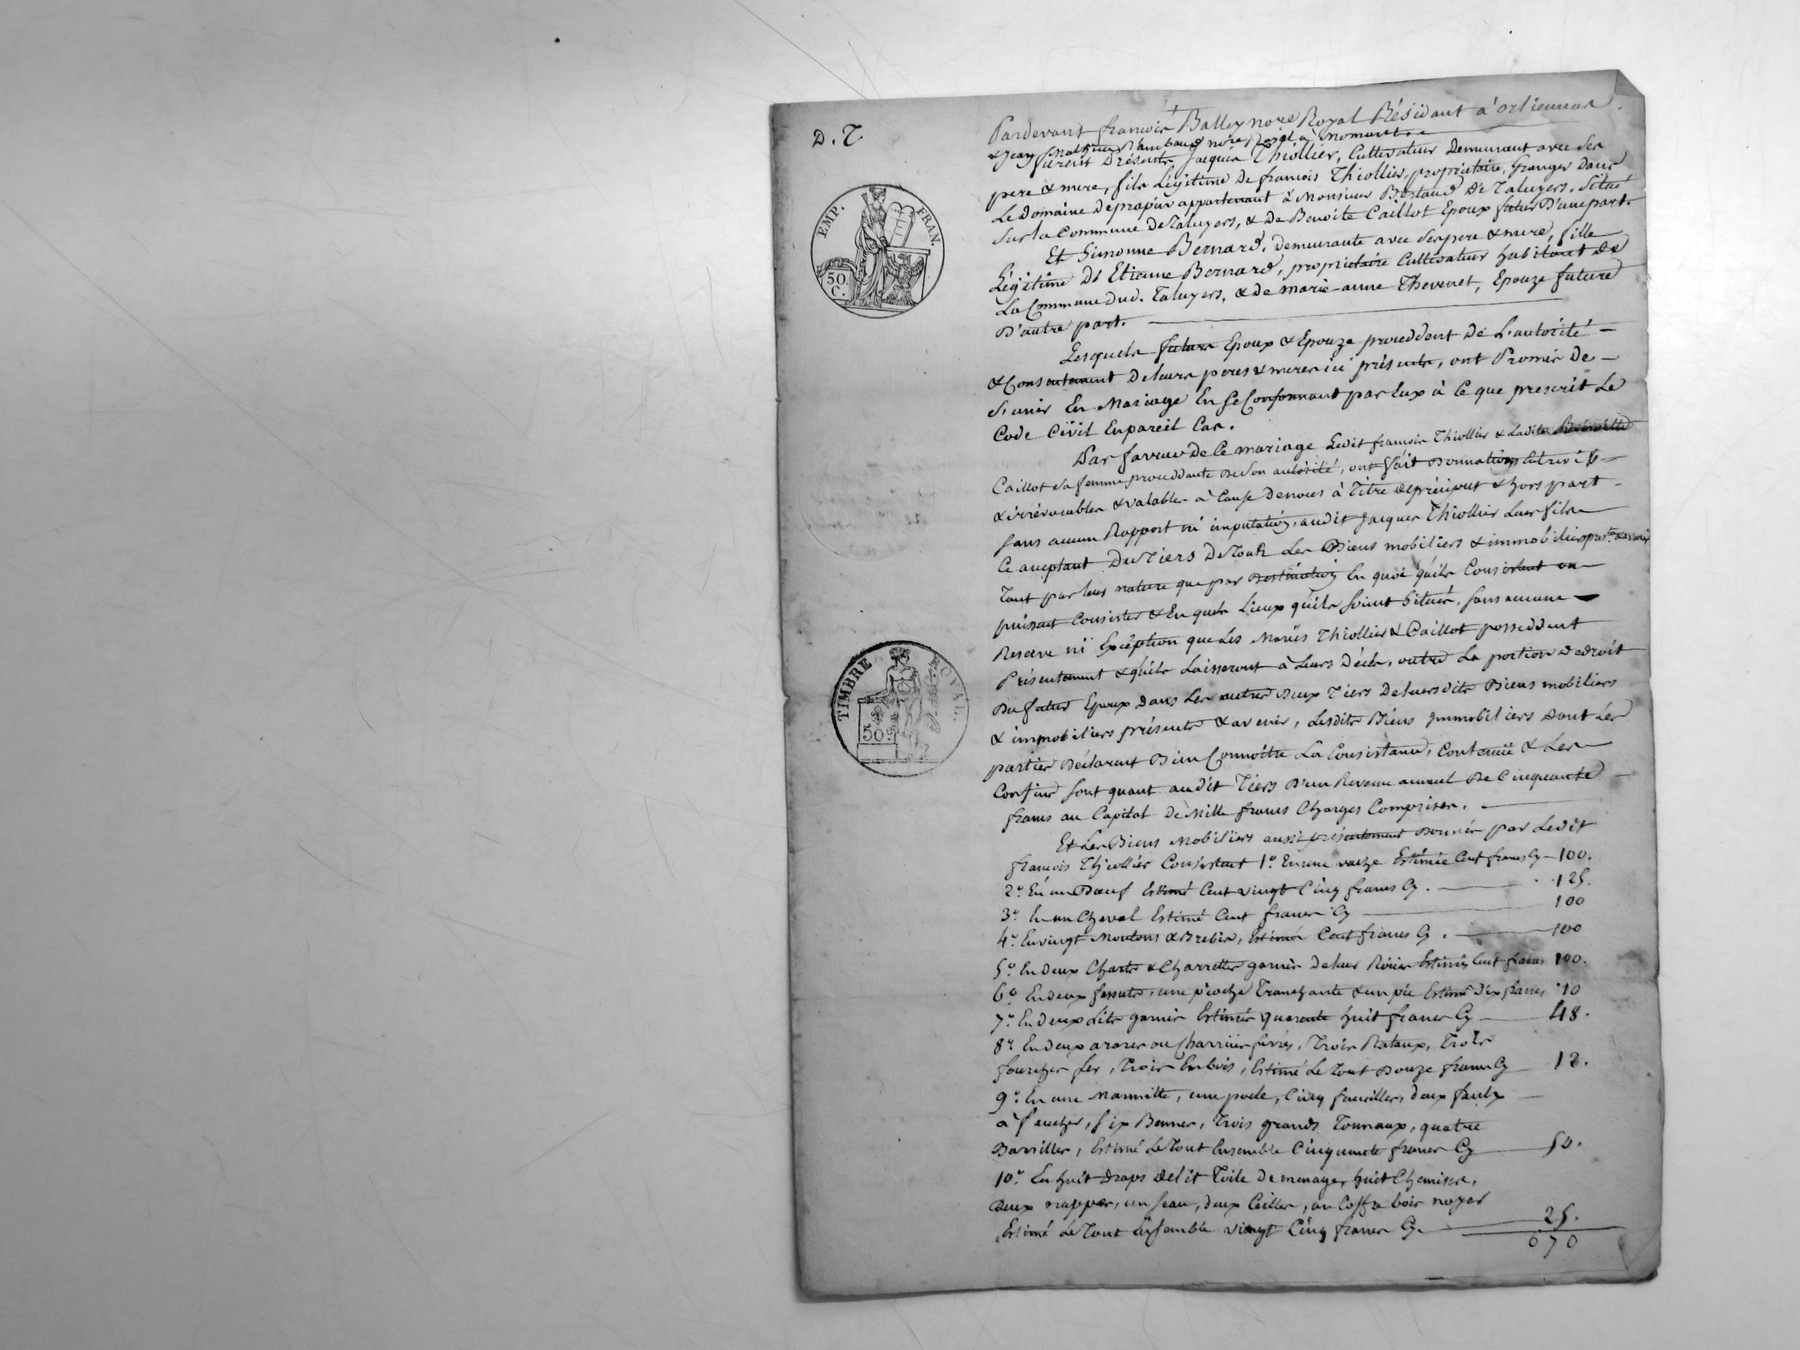 D. T
Pardevant françois Balley no.re Royal Résidant à orlienuas.
& Jean Mathieu Rambaud no.re Royal à Mornant.
furent Présents Jacques Thiollier, Cultivateur Demeurant avec ses
pere & mere, fils Légitime De françois Thiollier, propriétaire, Granger Dans
Le Domaine De prapin appartenant à Monsieur Bertaud De Taluyers, Situé
Sur la Commune De Taluyers, & de Benoite Caillot Epoux futur D'une part.
Et Simonne Bernard, demeurante avec ses pere & mere, fille
Légitime De Etienne Bernard, propriétaire Cultivateur habitant de
La Commune dud. Taluyers, & de marie-anne Thevenet, Epouze future
D'autre part.
Lesquels futurs Epoux & Epouze proceddent De L'autorité
& Consentement De leurs peres & meres ici présents, ont Promis De
S'unir En Mariage En se Conformant par Eux à Ce que prescrit Le
Code Civil En pareil Cas.
Par faveur de Ce mariage Ledit françois Thiollier & Ladite Benoitte
Caillot sa femme proceddante De son autorité, ont fait Donnation Entrevifs
& irrévocables & valables à Cause De noces à Titre de préciput & hors part
sans aucun Rapport ni imputation, audit Jacques Thiollier Leur fils
Ce acceptant Du Tiers De Touts Les Biens mobiliers & immobiliers pnts. & avenir
Tant par leur nature que par Destination En quoi qu'ils Consistent ou
puissent Consister & En quels Lieux qu'ils soient Situés, sans aucune
Reserve ni Exception que Les Mariés Thiollier & Caillot posseddent
Présentement & qu'ils Laisseront à Leurs Décès, outre La portion De droit
Du futur Epoux dans Les autres Deux Tiers De leursdits Biens mobiliers
& immobiliers présents & avenir, Lesdits Biens Immobiliers Dont Les
parties Déclarent Bien Connoitre La Consistance, Contenüe & Les
Confins sont quant audit Tiers D'un Revenu annuel De Cinquante
francs au Capital De Mille francs Charges Comprises.
Et Les Biens Mobiliers aussi présentement Donnés par Ledit
françois Thiollier Consistent 1.o En une vache Estimée Cent francs Cy 100.
2.o En un Bœuf Estimé Cent vingt Cinq francs Cy. 125.
3.o En un Cheval Estimé Cent francs Cy 100
4.o En vingt Moutons & Brebis, Estimés Cent francs Cy. 100
5.o En deux Chards & Charrettes garnis De leur Rouës Estimés Cent francs 100.
6.o En deux fessous, une pioche Tranchante & un pic Estimé Dix francs 10
7.o En deux Lits garnis Estimés quarente huit francs Cy 48.
8.o En deux araires ou Charrues ferrés, Trois Rataux, Trois
fourches fer, Trois En bois, Estimé Le Tout Douze francs Cy 12.
9.o En une Marmitte, une poele, Cinq faucilles, deux faulx
à faucher, six Bennes, Trois grands Tonnaux, quatre
Barrilles, Estimé Le Tout Ensemble Cinquante francs Cy 50.
10.o En huit draps de Lit Toile De menage, huit Chemises,
Deux nappes, un seau, deux Cuillers, un Coffre bois noyer
Estimé Le Tout Ensemble vingt Cinq francs Cy. 25.
670
EMP. FRAN.
50 C.
TIMBRE ROYAL.
50 C